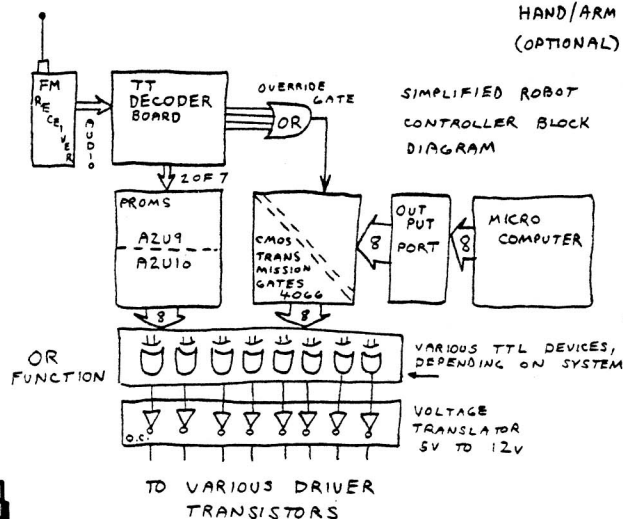 HAND/ARM
(OPTIONAL)
FM
RECEIVER
AUDIO
TT
DECODER
BOARD
OVERRIDE
GATE
OR
SIMPLIFIED ROBOT
CONTROLLER BLOCK
DIAGRAM
2 OF 7
PROMS
A2U9
A2U10
CMOS
TRANS
MISSION
GATES
4066
8
OUT
PUT
PORT
8
MICRO
COMPUTER
8
8
OR
FUNCTION
VARIOUS TTL DEVICES,
DEPENDING ON SYSTEM
O.C.
VOLTAGE
TRANSLATOR
5V TO 12V
TO VARIOUS DRIVER
TRANSISTORS